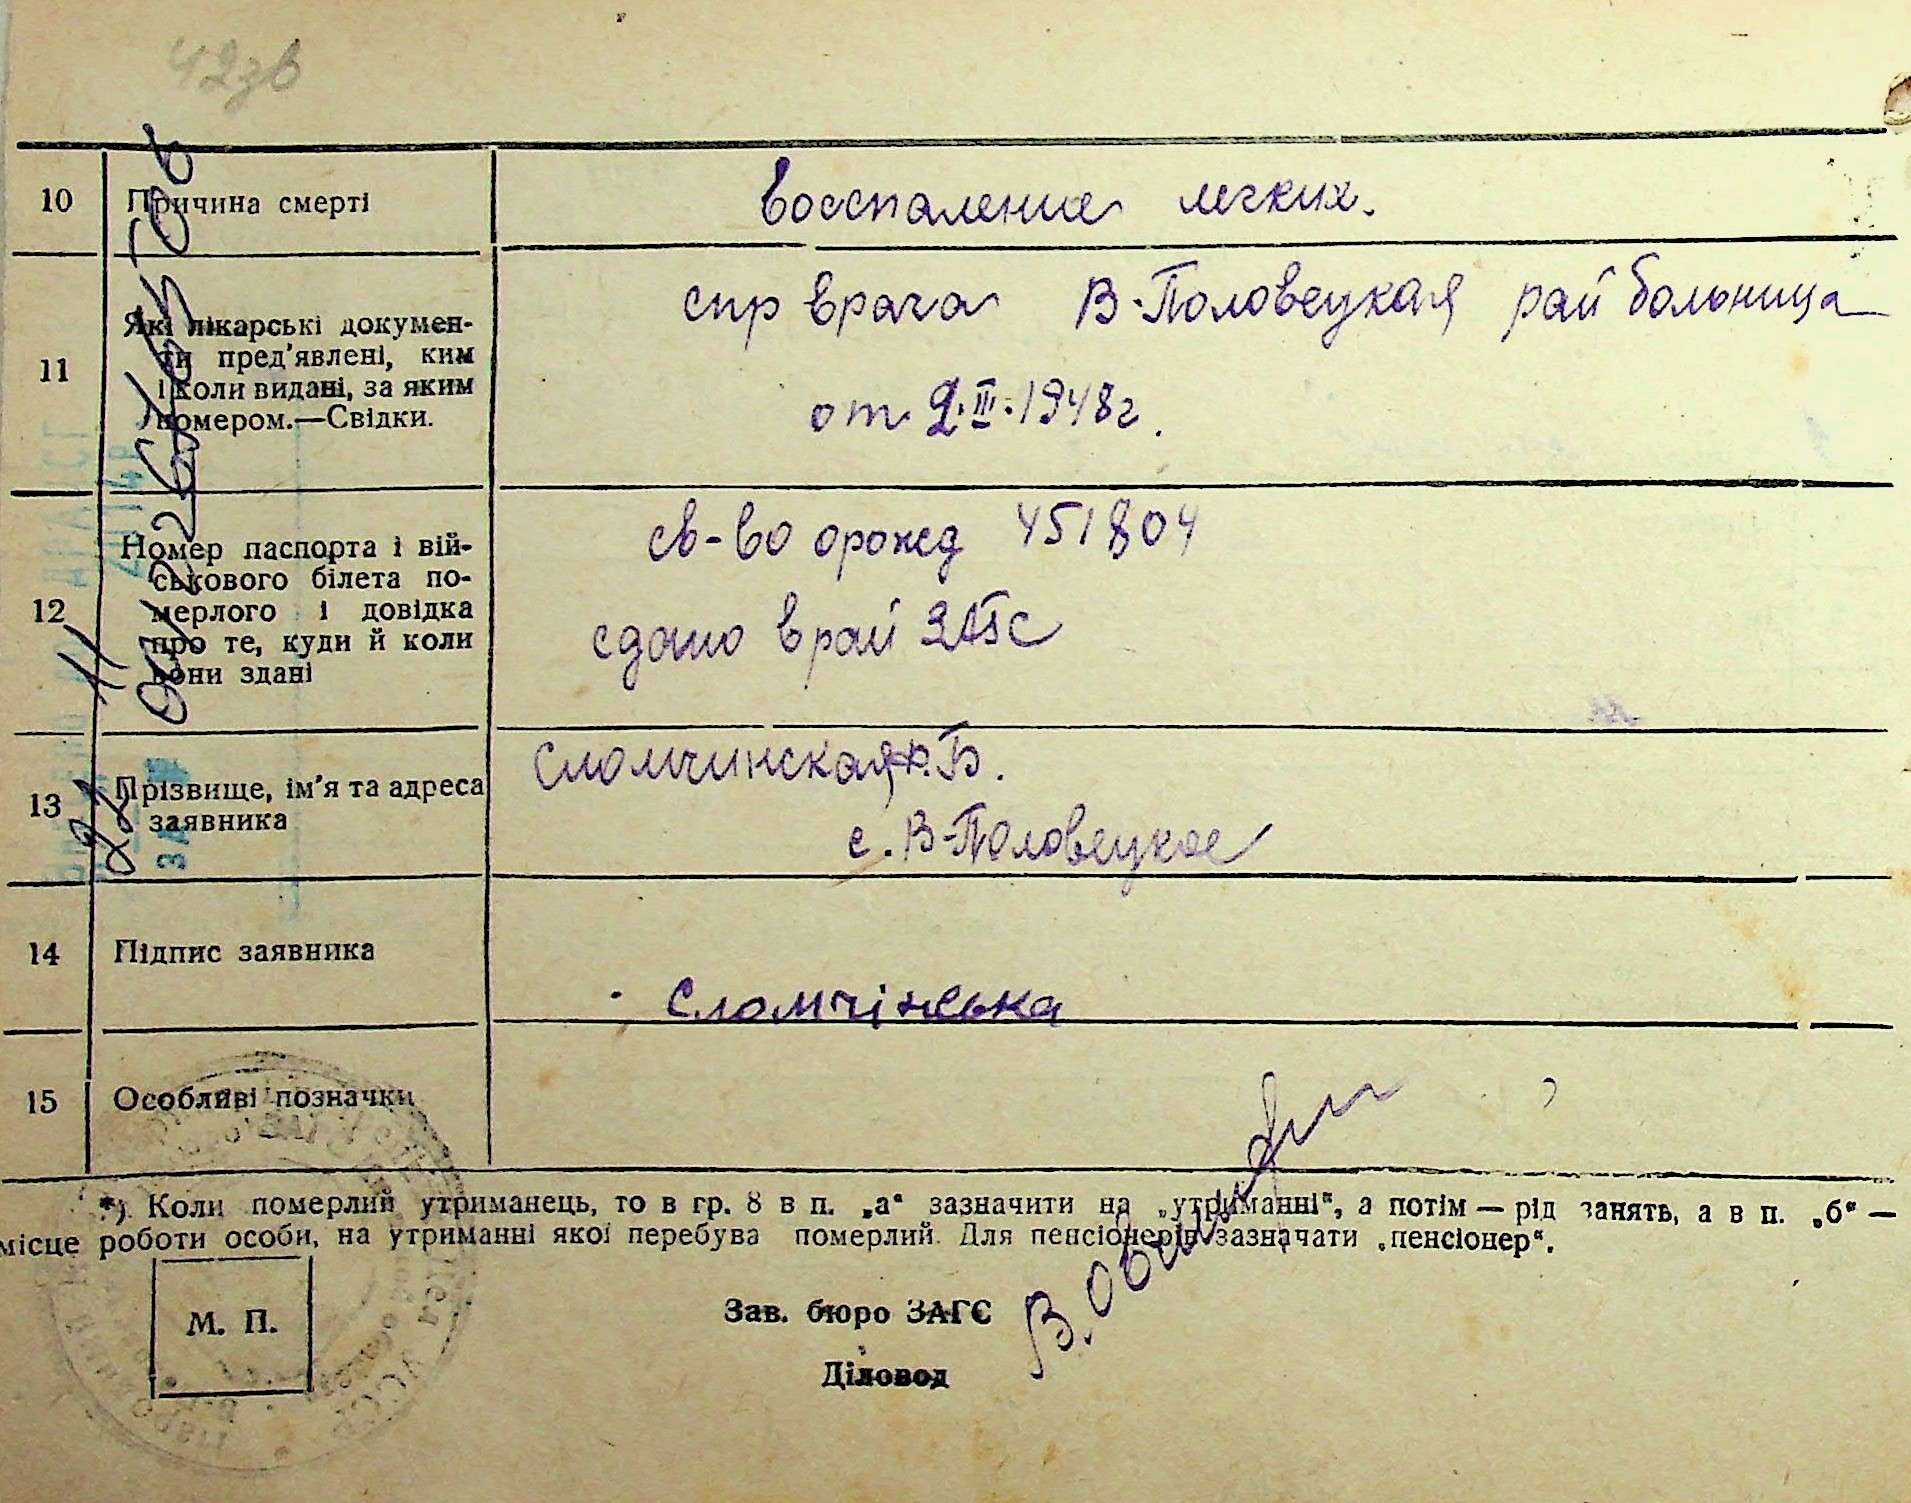 42зв
10 Причина смерті Воспаление легких.
11 Які лікарські докумен-
ти пред'явлені, ким
і коли видані, за яким
номером.—Свідки.
спр врача В-Половецкая рай больница
от 2.III.1948г.
12 Номер паспорта і вій-
ськового білета по-
мерлого і довідка
про те, куди й коли
вони здані
св-во орожд 451804
сдано врай ЗАГС
13 Прізвище, ім'я та адреса
заявника
Сломчинская Б.
с. В-Половецкое
14 Підпис заявника
Сломчінська
15 Особливі позначки
*) Коли померлий утриманець, то в гр. 8 в п. „а“ зазначити на „утриманні“, а потім — рід занять, а в п. „б“ —
місце роботи особи, на утриманні якої перебува померлий. Для пенсіонерів зазначати „пенсіонер“.
М. П.
Зав. бюро ЗАГС
Діловод